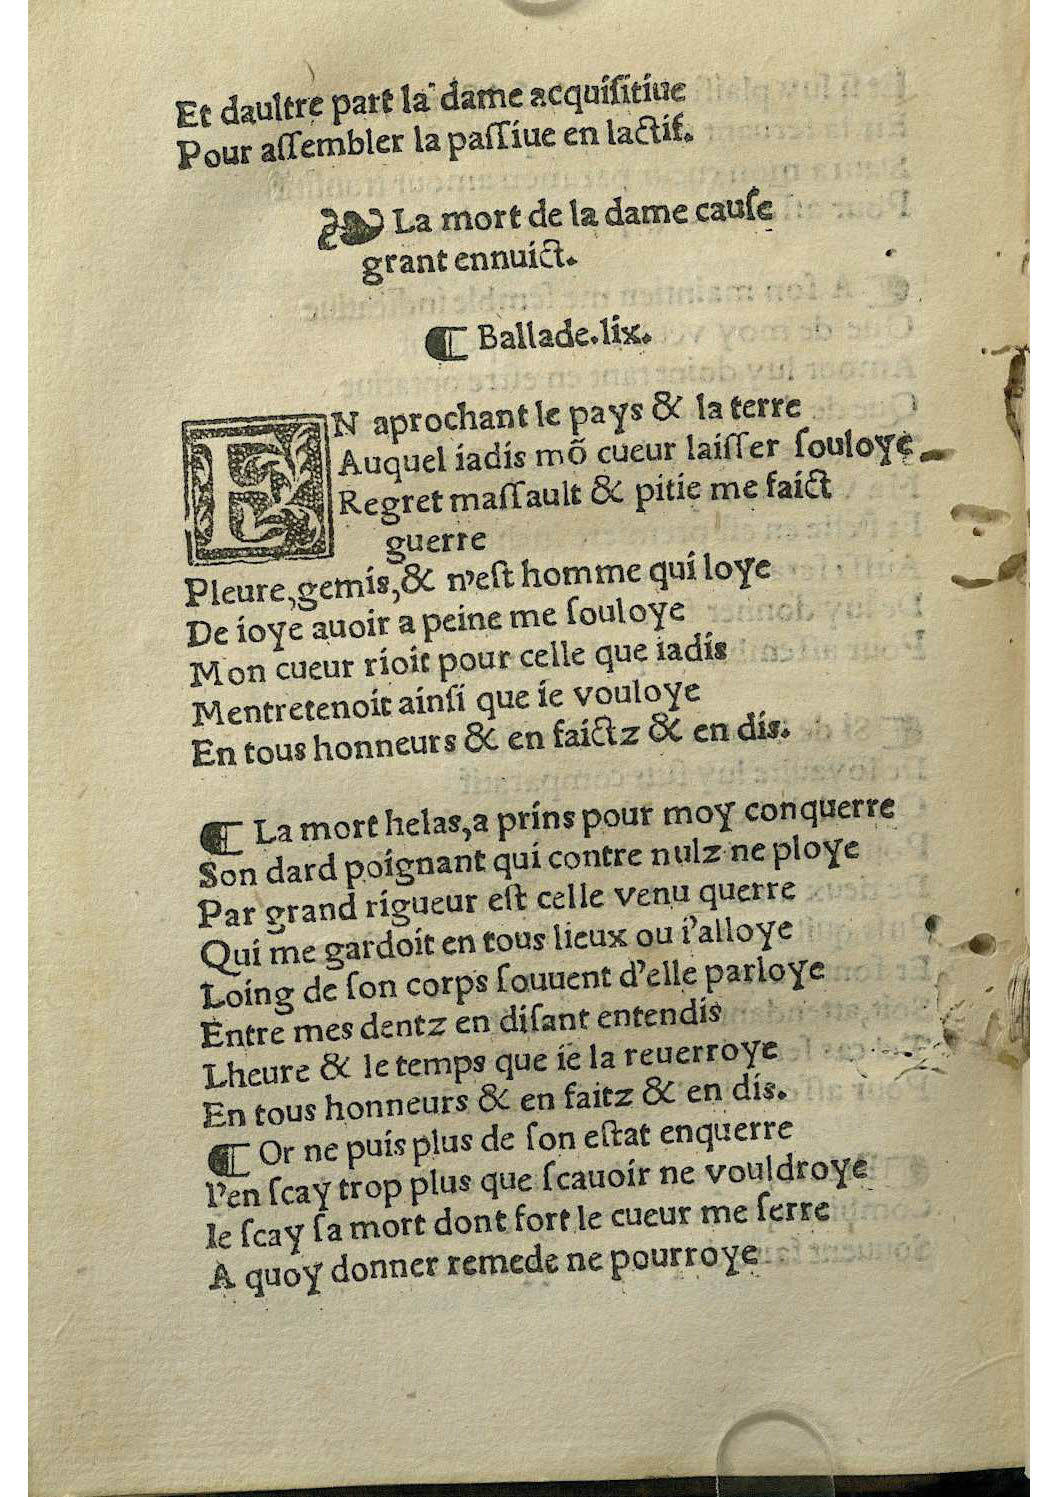 Et daultre part la dame acquiſitiue
Pour aſſembler la paſſiue en lactif.
❧ La mort de la dame cauſe
grant ennuict.
¶ Ballade.lix.
EN aprochant le pays & la terre
Auquel iadis mõ cueur laiſſer ſouloye
Regret maſſault & pitie me faict
guerre
Pleure,gemis,& n'eſt homme qui loye
De ioye auoir a peine me ſouloye
Mon cueur rioit pour celle que iadis
Mentretenoit ainſi que ie vouloye
En tous honneurs & en faictz & en dis.
¶ La mort helas,a prins pour moy conquerre
Son dard poignant qui contre nulz ne ploye
Par grand rigueur eſt celle venu querre
Qui me gardoit en tous lieux ou i'alloye
Loing de ſon corps ſouuent d'elle parloye
Entre mes dentz en diſant entendis
Lheure & le temps que ie la reuerroye
En tous honneurs & en faitz & en dis.
¶ Or ne puis plus de ſon eſtat enquerre
I'en ſcay trop plus que ſcauoir ne vouldroye
Ie ſcay ſa mort dont fort le cueur me ſerre
A quoy donner remede ne pourroye